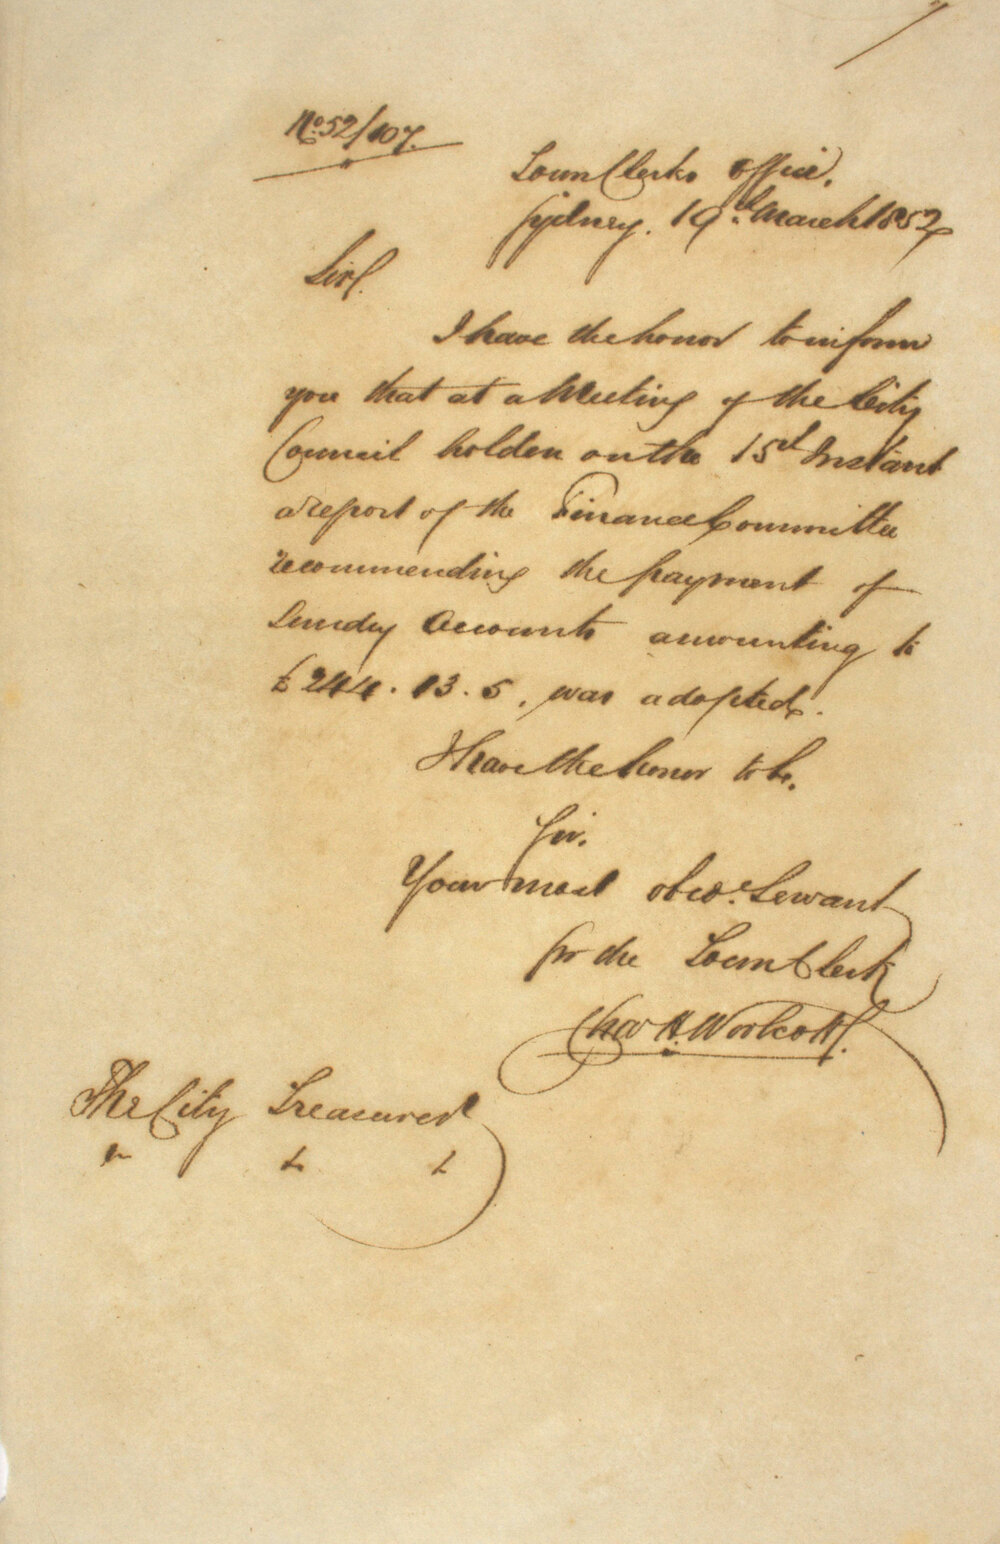 No. 52/107.
Town Clerks Office.
Sydney. 19th March 1852
Sir,
I have the honor to inform
you that at a Meeting of the City
Council holden on the 15th Instant
a report of the Finance Committee
recommending the payment of
Sundry Accounts amounting to
£244.13.5. was adopted.
I have the honor to be.
Sir.
Your most obed. Servant
for the Town Clerk
Chas H. Woolcott.
The City Treasurer